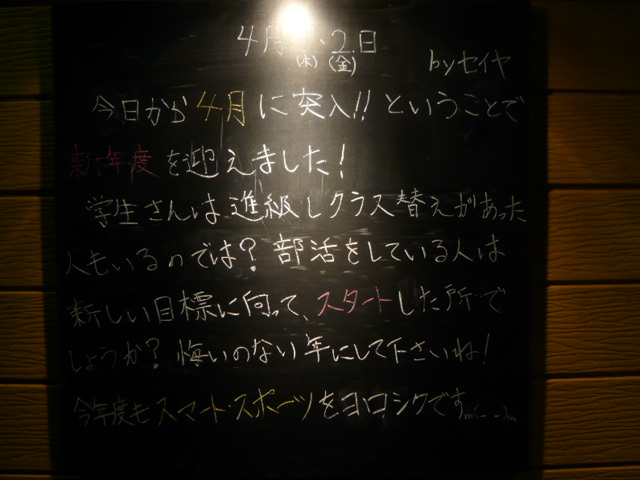 4月1・2日
(木) (金) byセイヤ
今日から4月に突入!! ということで
新年度を迎えました!
学生さんは進級しクラス替えがあった
人もいるのでは? 部活をしている人は
新しい目標に向って、スタートした所で
しょうか? 悔いのない年にして下さいね!
今年度もスマート・スポーツをヨロシクですm(_ _)m